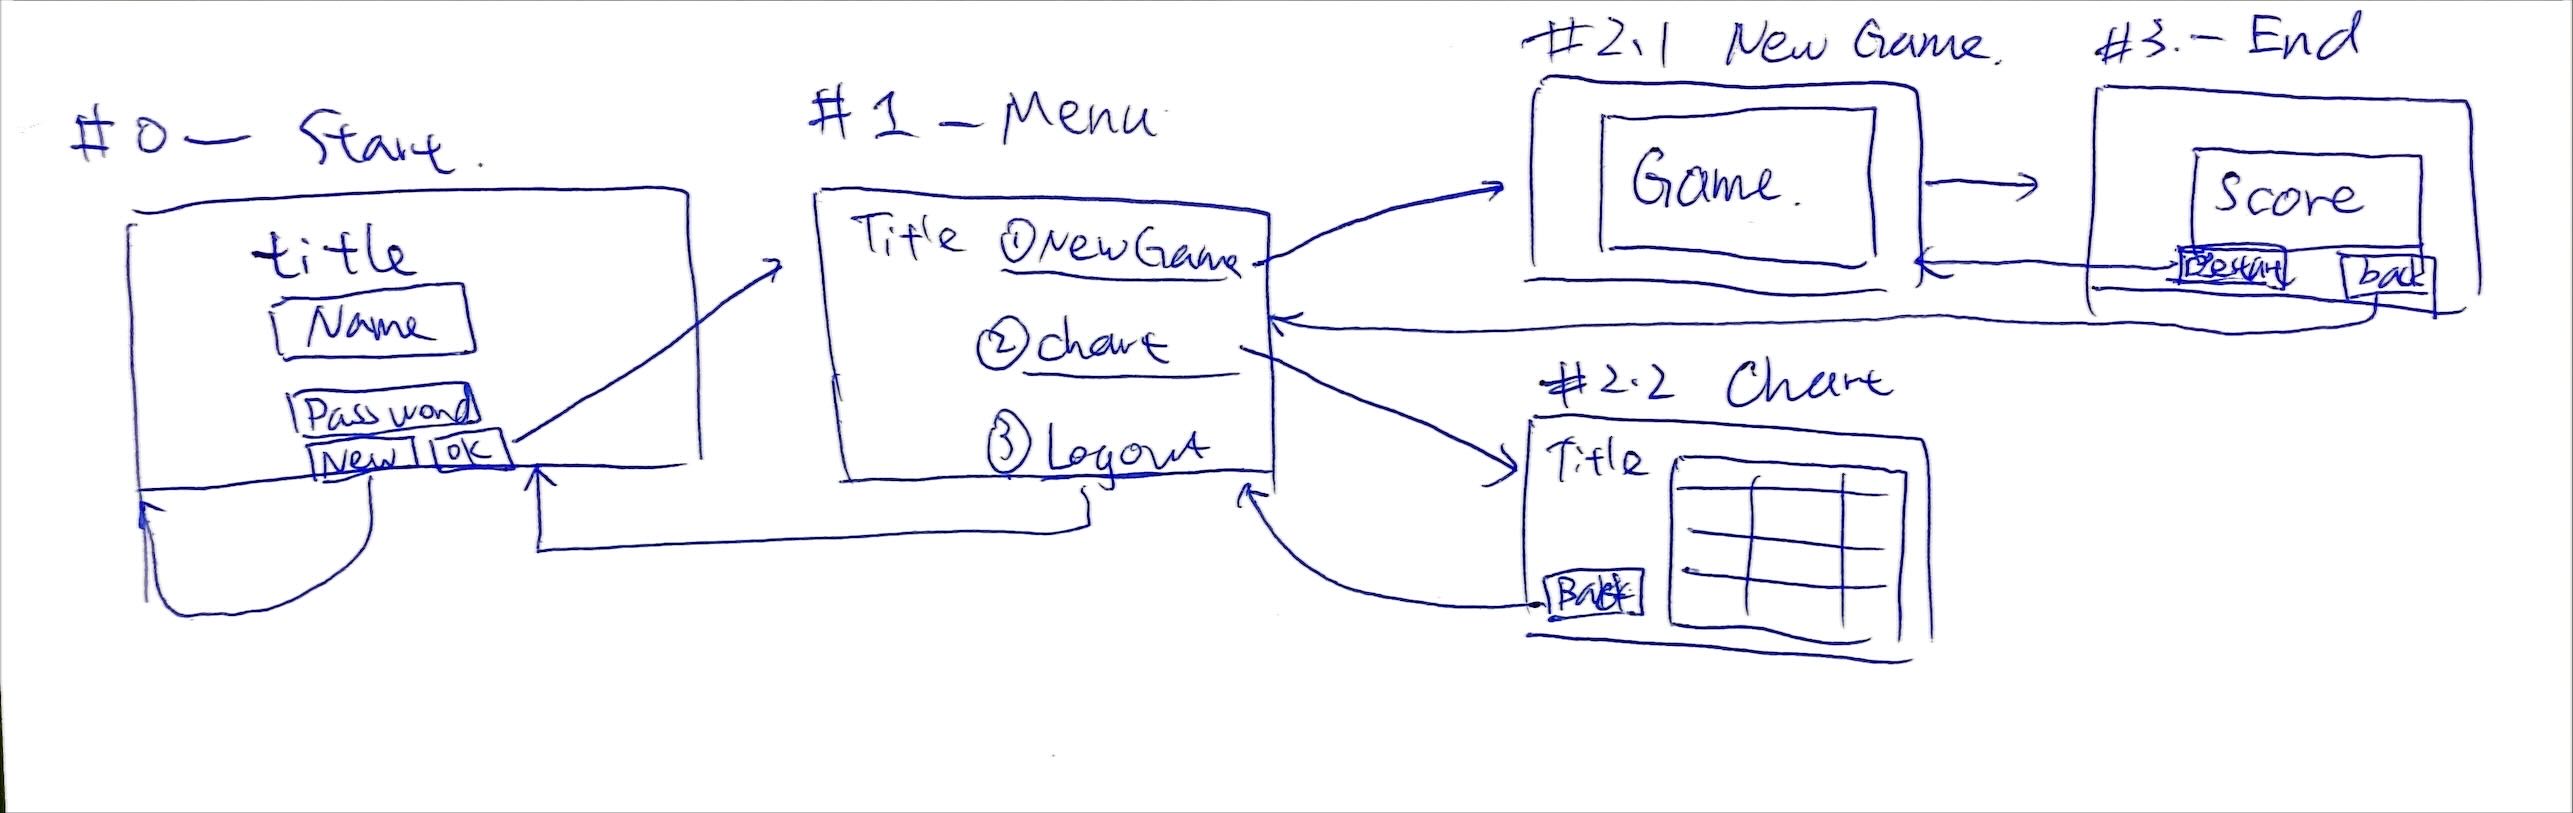 #0 — Start.
title
Name
Password
New OK
#1 - Menu
Title ① New Game
② chart
③ Logout
#2.1 New Game.
Game.
#3. - End
Score
Restart back
#2.2 Chart
Title
Back